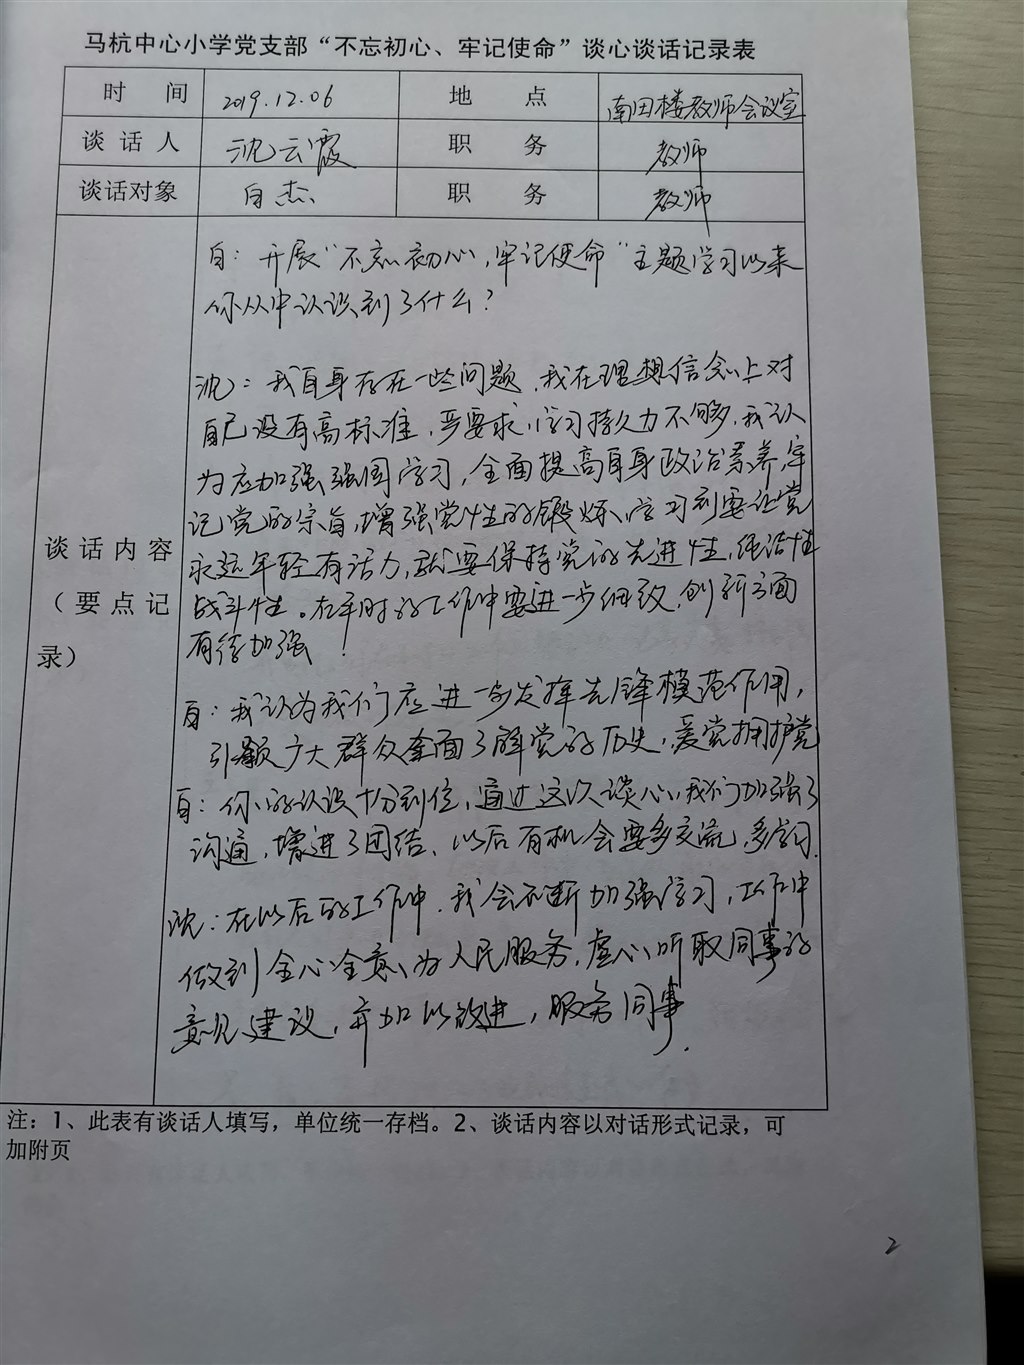 马杭中心小学党支部“不忘初心、牢记使命”谈心谈话记录表
时 间 2019.12.06 地 点 南田楼教师会议室
谈 话 人 沈云霞 职 务 教师
谈话对象 白杰 职 务 教师
谈 话 内 容
（ 要 点 记
录）
白：开展“不忘初心，牢记使命”主题学习以来
你从中认识到了什么？
沈：我自身存在一些问题，我在理想信念上对
自己没有高标准，严要求，学习持久力不够，我认
为应加强强固学习，全面提高自身政治素养，牢
记党的宗旨，增强党性的锻炼，学习到要让党
永远年轻有活力，就要保持党的先进性，纯洁性
战斗性。在平时的工作中要进一步细致，创新方面
有待加强！
白：我认为我们应进一步发挥先锋模范作用，
引领广大群众全面了解党的历史，爱党拥护党
白：你的认识十分到位，通过这次谈心，我们加强了
沟通，增进了团结、以后有机会要多交流，多学习.
沈：在以后的工作中，我会不断加强学习，工作中
做到全心全意为人民服务，虚心听取同事的
意见建议，并加以改进，服务同事.
注：1、此表有谈话人填写，单位统一存档。2、谈话内容以对话形式记录，可
加附页
2